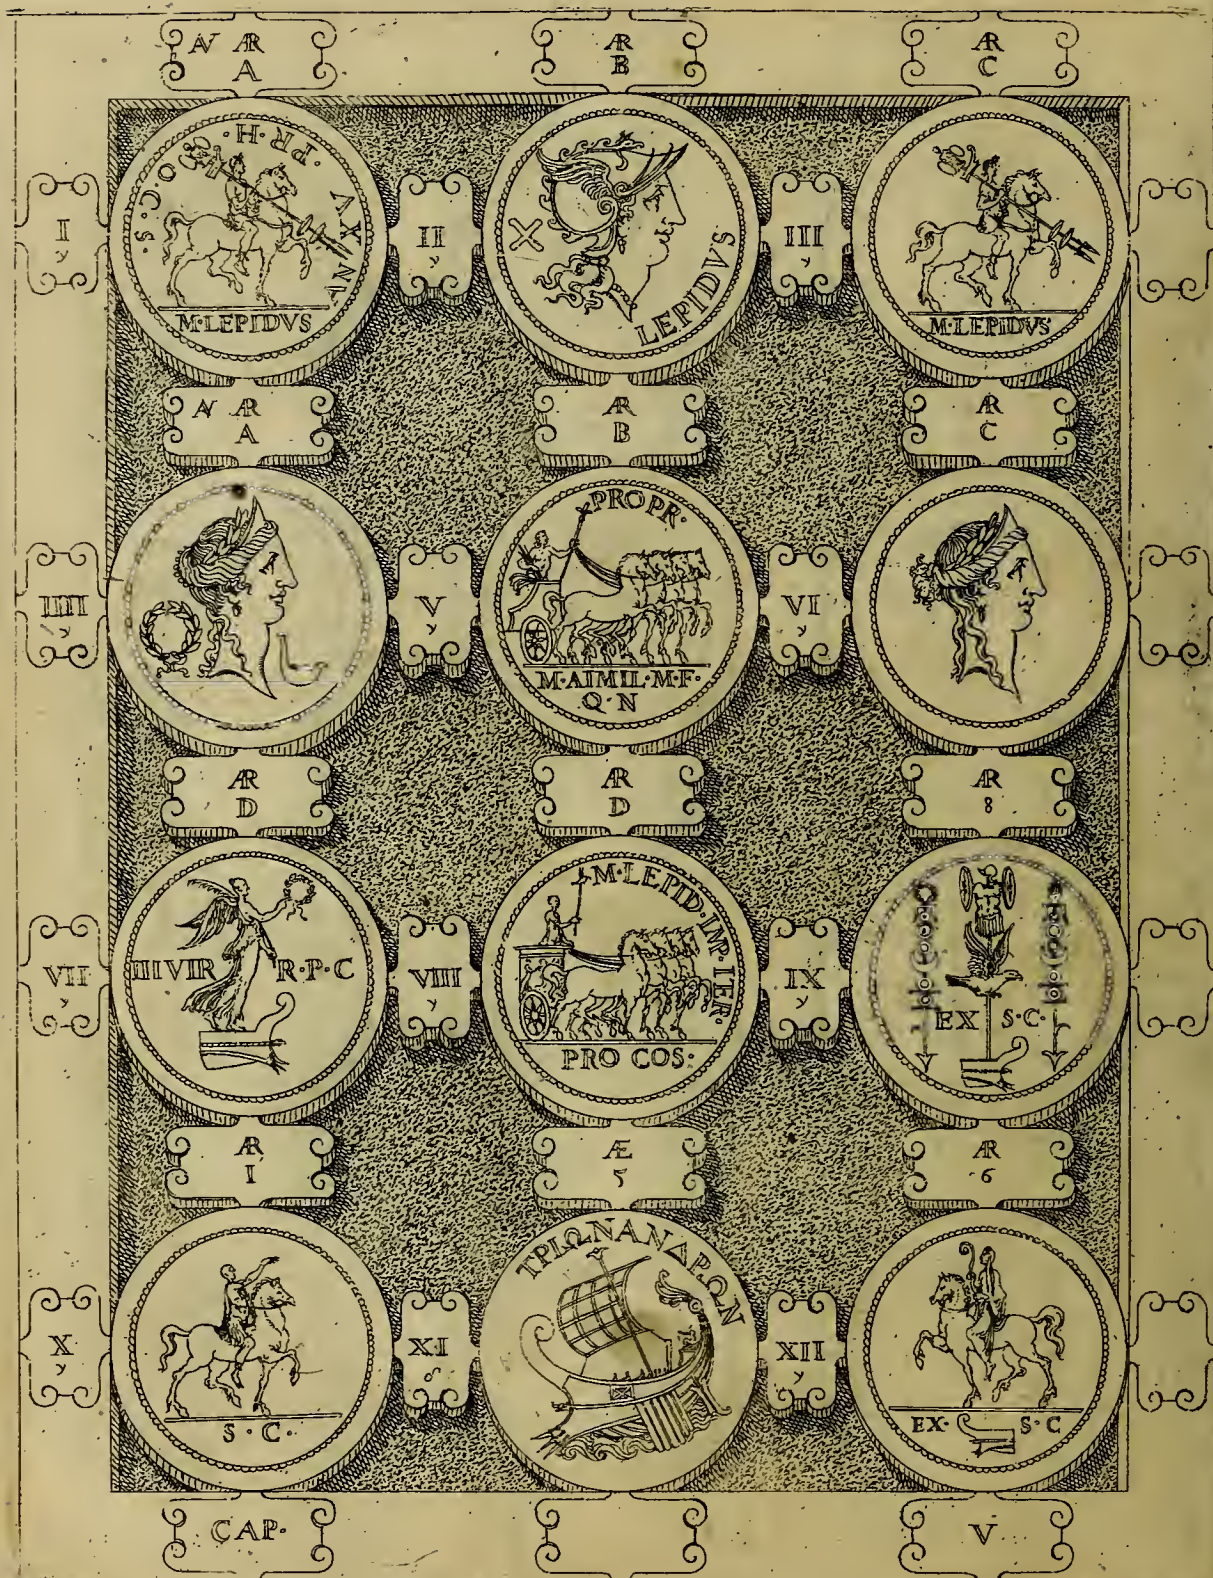 AV AR
A
AR
B
AR
C
I
·S·C·O·O·H·PR· ΛVXΛN
M·LEPIDVS
II
X
LEPIDVS
III
M·LEPIDVS
AV AR
A
AR
B
AR
C
IIII
V
PROPR·
M·AIMIL·M·F·
Q·N
VI
AR
D
AR
D
AR
8
VII
IIIVIR R·P·C
VIII
M·LEPID·IMP·TER·
PRO COS·
IX
EX S·C·
AR
1
Æ
5
AR
6
X
S·C·
XI
ΤΡΙΩΝΑΝΔΡΩΝ
XII
EX· S·C
CAP·
V